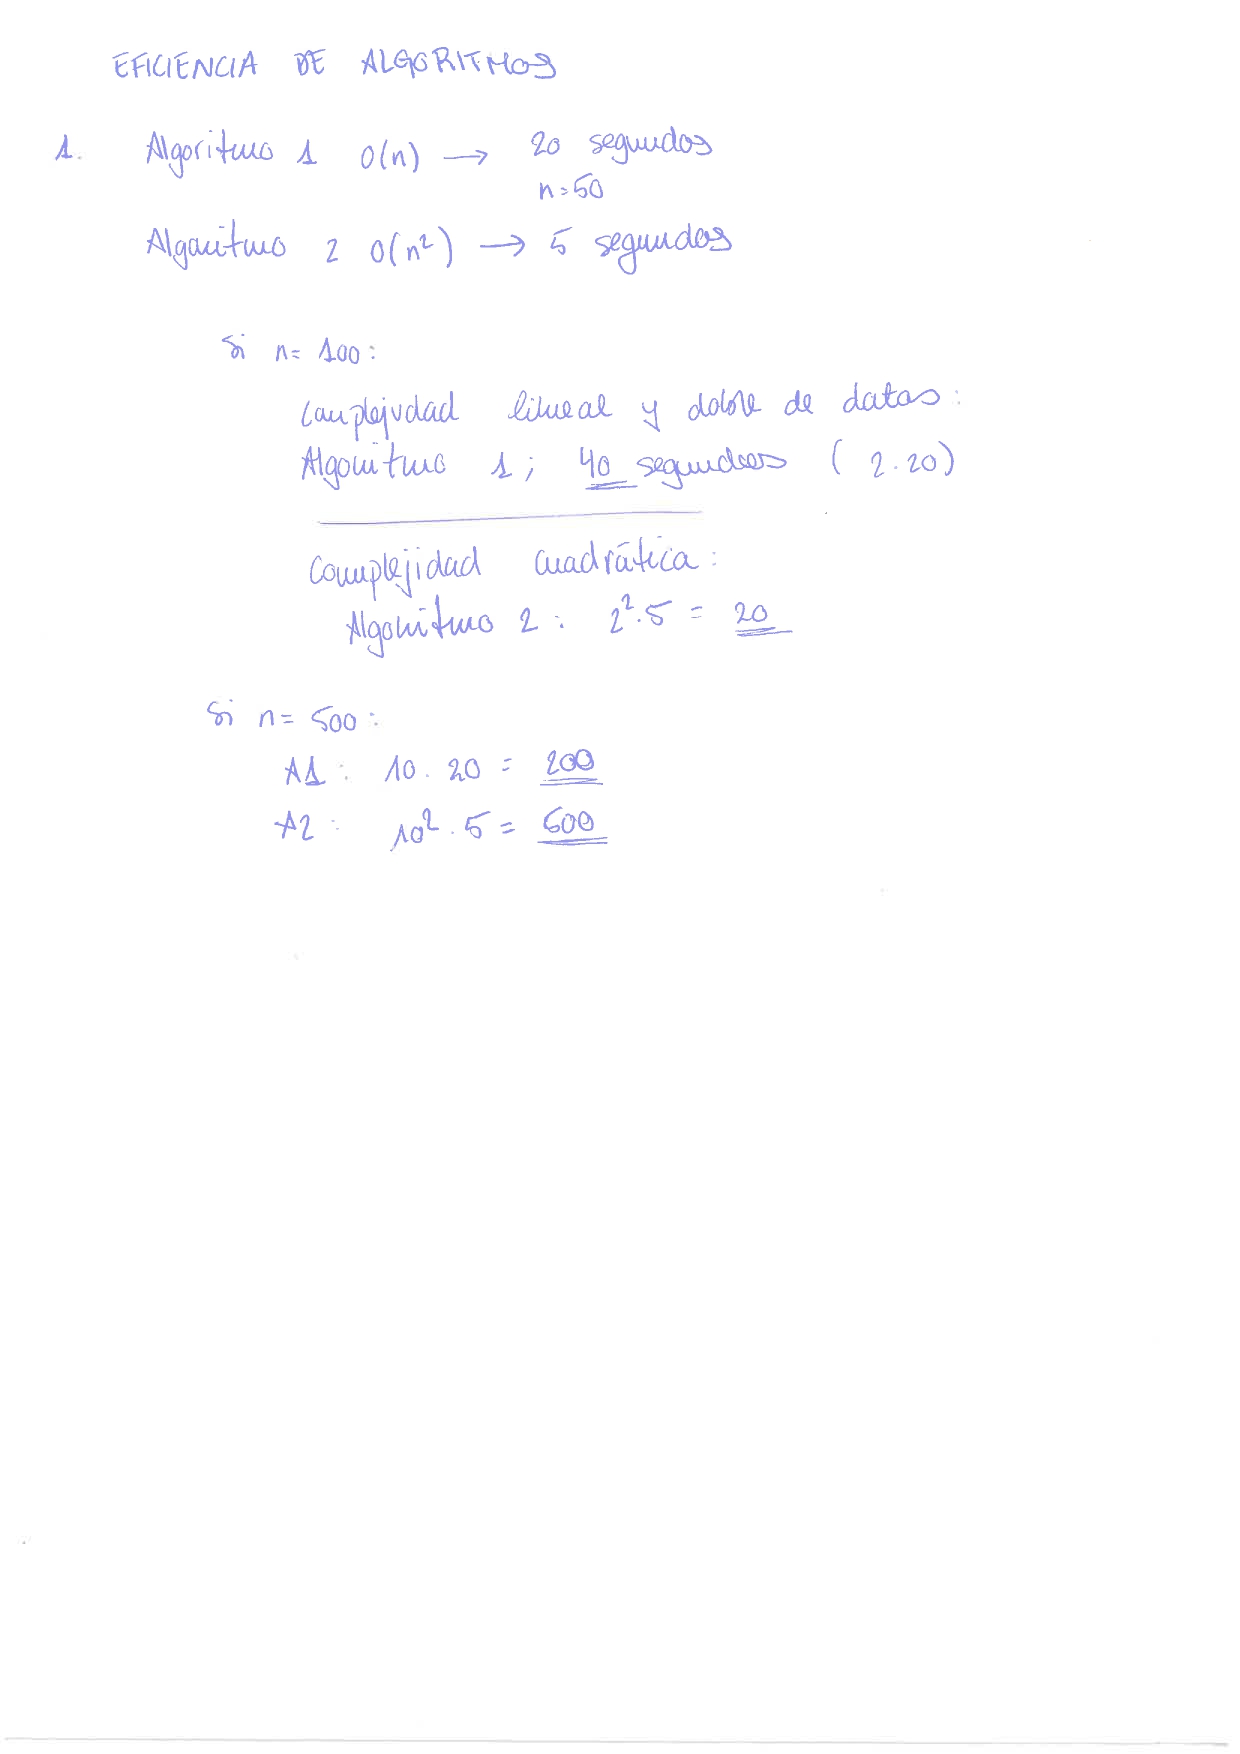 EFICIENCIA DE ALGORITMOS
1. Algoritmo 1 O(n) → 20 segundos
n=50
Algoritmo 2 O(n²) → 5 segundos
Si n= 100:
Complejidad lineal y doble de datos:
Algoritmo 1; 40 segundos (2.20)
Complejidad cuadrática:
Algoritmo 2: 2².5 = 20
Si n= 500:
A1: 10.20 = 200
A2: 10².5 = 500